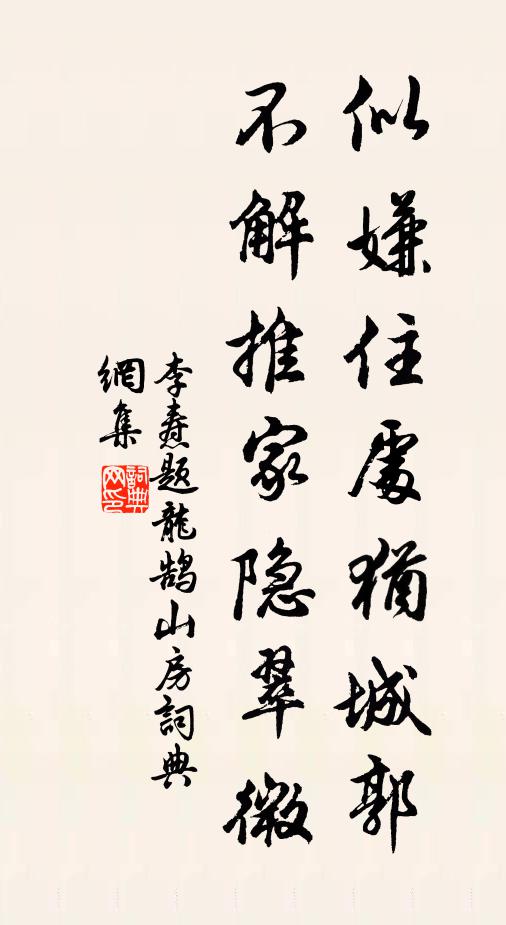 似嫌住處猶城郭
不解推家隐翠微
李燾题龍鹄山房詞典
網集
詞典網印